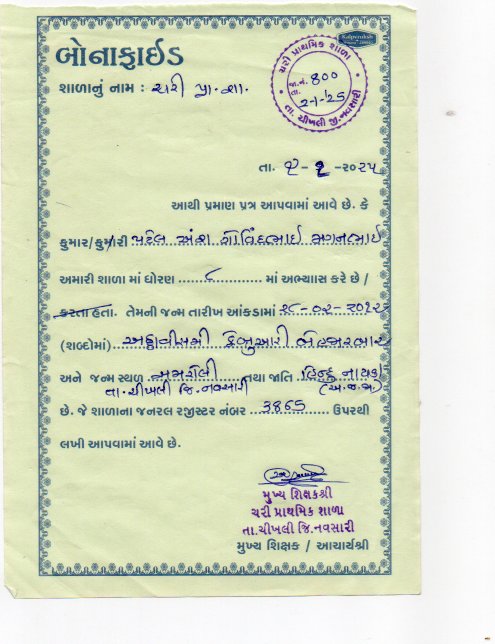 બોનાફાઈડ
Kalpvruksh
શાળાનું નામ : ચરી પ્રા. શા.
ચરી પ્રાથમિક શાળા
જા.નં. 800
તા. 2-1-25
તા. ચીખલી જી.નવસારી
તા. - ૧ -૨૦૨૫
આથી પ્રમાણ પત્ર આપવામાં આવે છે. કે
કુમાર/કુમારી પટેલ અંશ ગોવિંદભાઈ મગનભાઈ
અમારી શાળા માં ધોરણ ............ માં અભ્યાસ કરે છે /
કરતા હતા. તેમની જન્મ તારીખ આંકડામાં ૨૮-૦૨-૨૦૧૨
(શબ્દોમાં) અઠ્ઠાવીસમી ફેબ્રુઆરી બેહજારબાર
અને જન્મ સ્થળ અમરોલી તથા જાતિ હિન્દુ નાયકા
તા. ચીખલી જિ. નવસારી (અ.જ.જા.)
છે. જે શાળાના જનરલ રજીસ્ટર નંબર ...3865... ઉપરથી
લખી આપવામાં આવે છે.
મુખ્ય શિક્ષકશ્રી
ચરી પ્રાથમિક શાળા
તા.ચીખલી જિ.નવસારી
મુખ્ય શિક્ષક / આચાર્યશ્રી